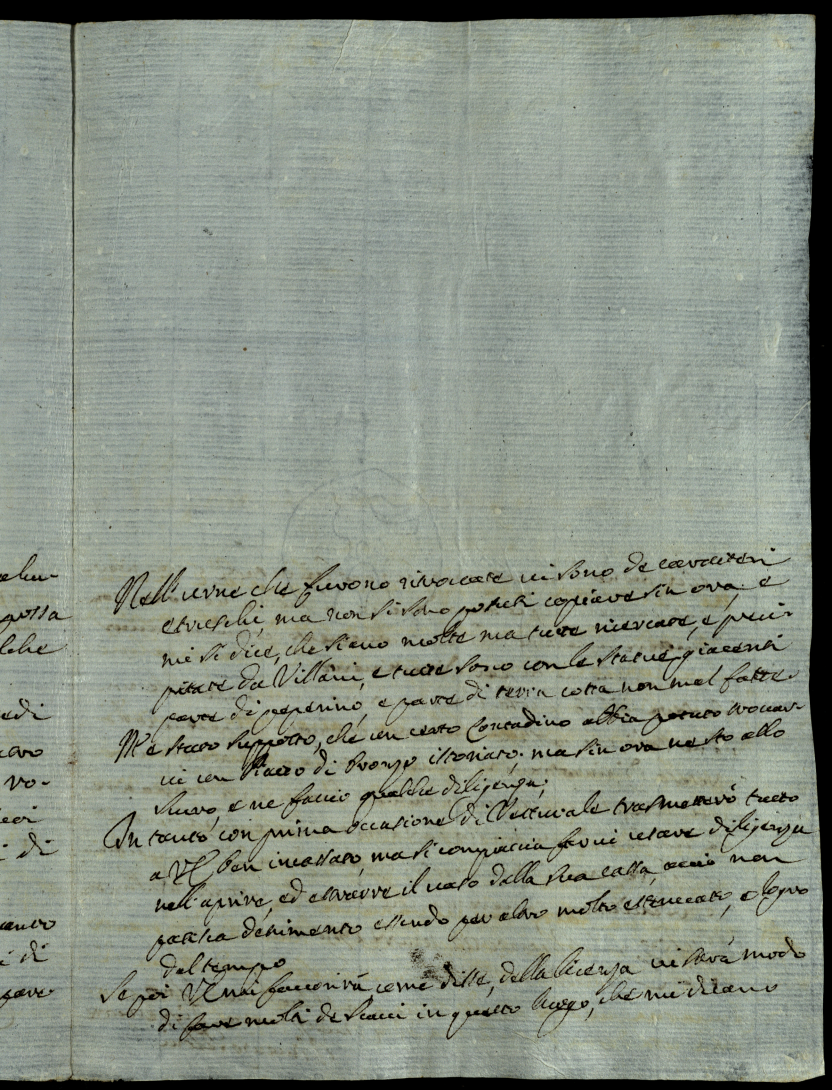 elu-
possa
lche
edi
ro-
di
i di
pare-
Nell'urne che furono ritrovate vi sono de caratteri
etruschi, ma non si sono potuti copiare sin ora, e
mi si dice, che siano molte ma tutte ricercate, e preci-
pitate da Villani, e tutte sono con le statue giacenti
parte di peperino, e parte di terra cotta non mal fatte.
M'è stato supposto, che un certo Contadino abbia potuto trovar-
vi un Vaso di bronzo istoriato, ma sin ora ne sto allo
scuro, e ne faccio qualche diligenza;
In tanto, con prima occasione di Vetturale trasmetterò tutto
a VS ben incassato, ma si compiaccia farvi usare diligenza
nell'aprire, ed estrarre il vaso dalla sua cassa, acciò non
patisca detrimento essendo per altro molto estenuato, e logro
dal tempo
Se poi VS mi favorirà come disse, della licenza vi sarà modo
di fare molti de scavi in questo luogo, che mi dicano